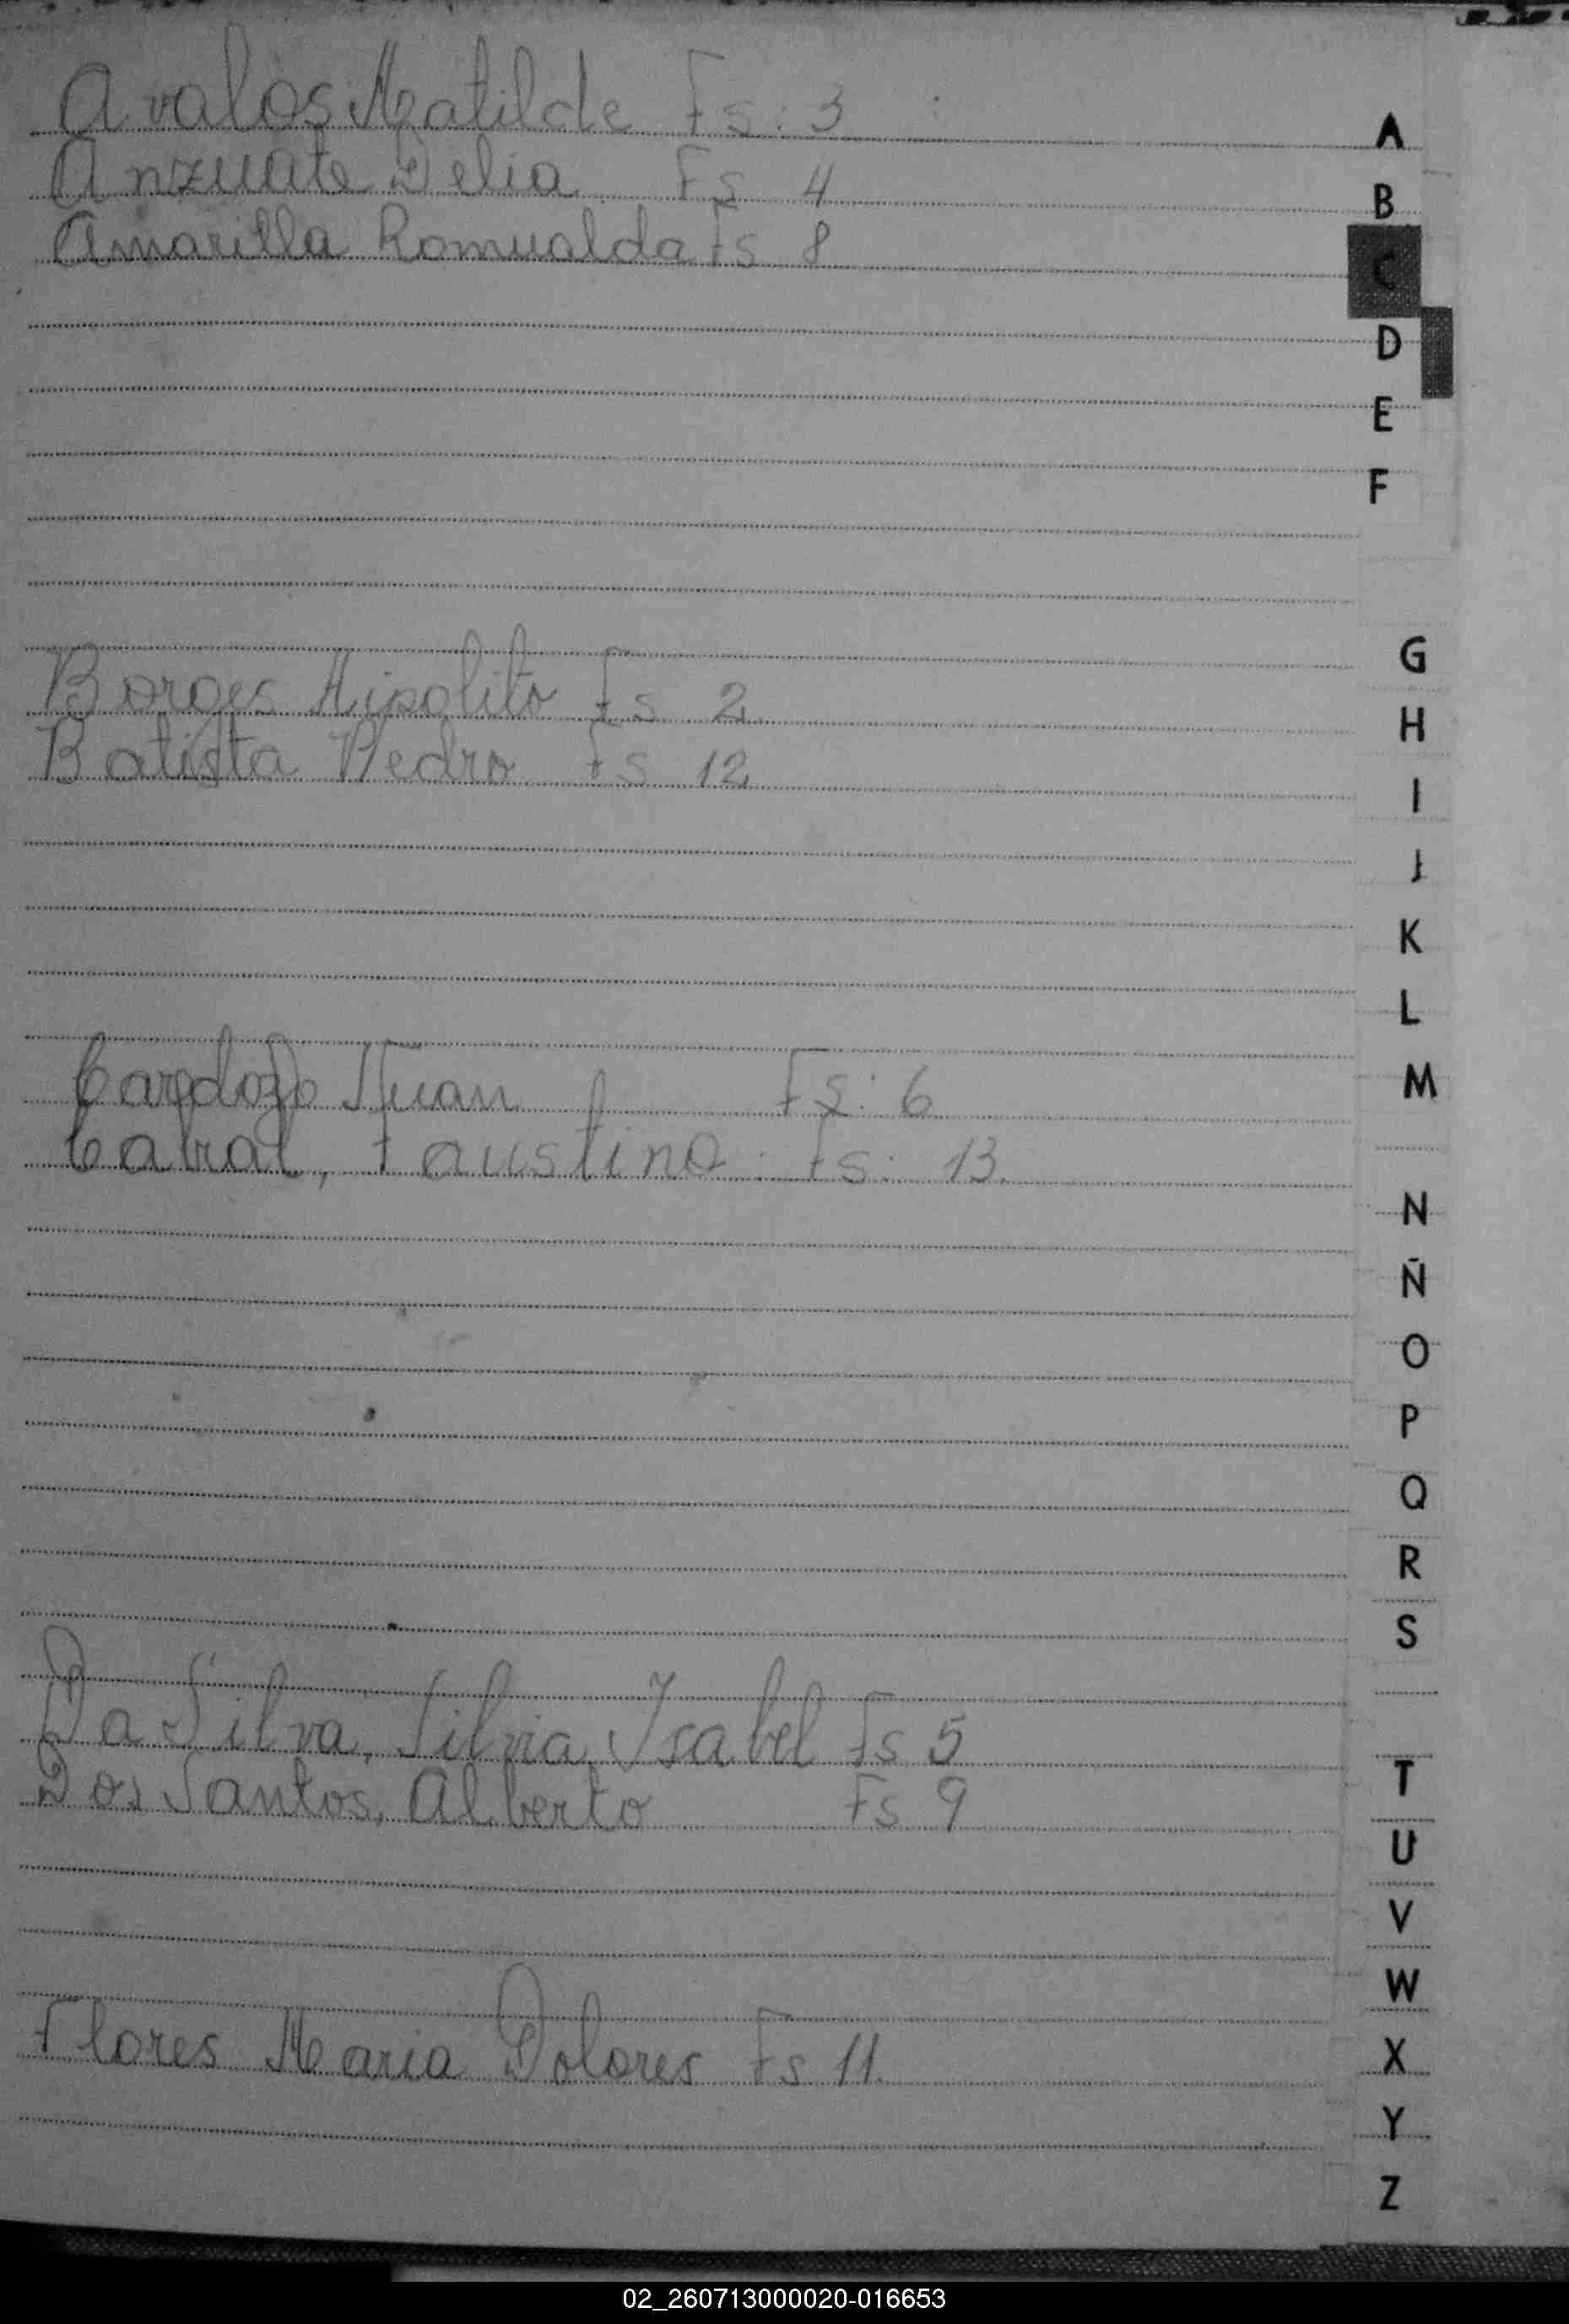 Avalos Matilde Fs: 3
Anzuate Delia Fs 4
Amarilla Romualda Fs 8
Borges Hipolito Fs 2
Batista Pedro Fs 12
Cardozo Juan Fs: 6
Cabral, Faustino. Fs: 13.
Da Silva, Silvia Isabel Fs 5
Dos Santos, Alberto Fs 9
Flores Maria Dolores Fs 11.
A
B
C
D
E
F
G
H
I
J
K
L
M
N
Ñ
O
P
Q
R
S
T
U
V
W
X
Y
Z
02_260713000020-016653